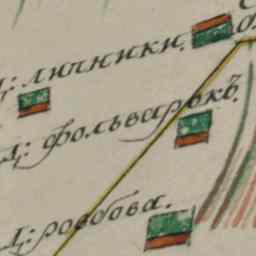 д: личники.
д: фольваръкъ.
д: росбова.